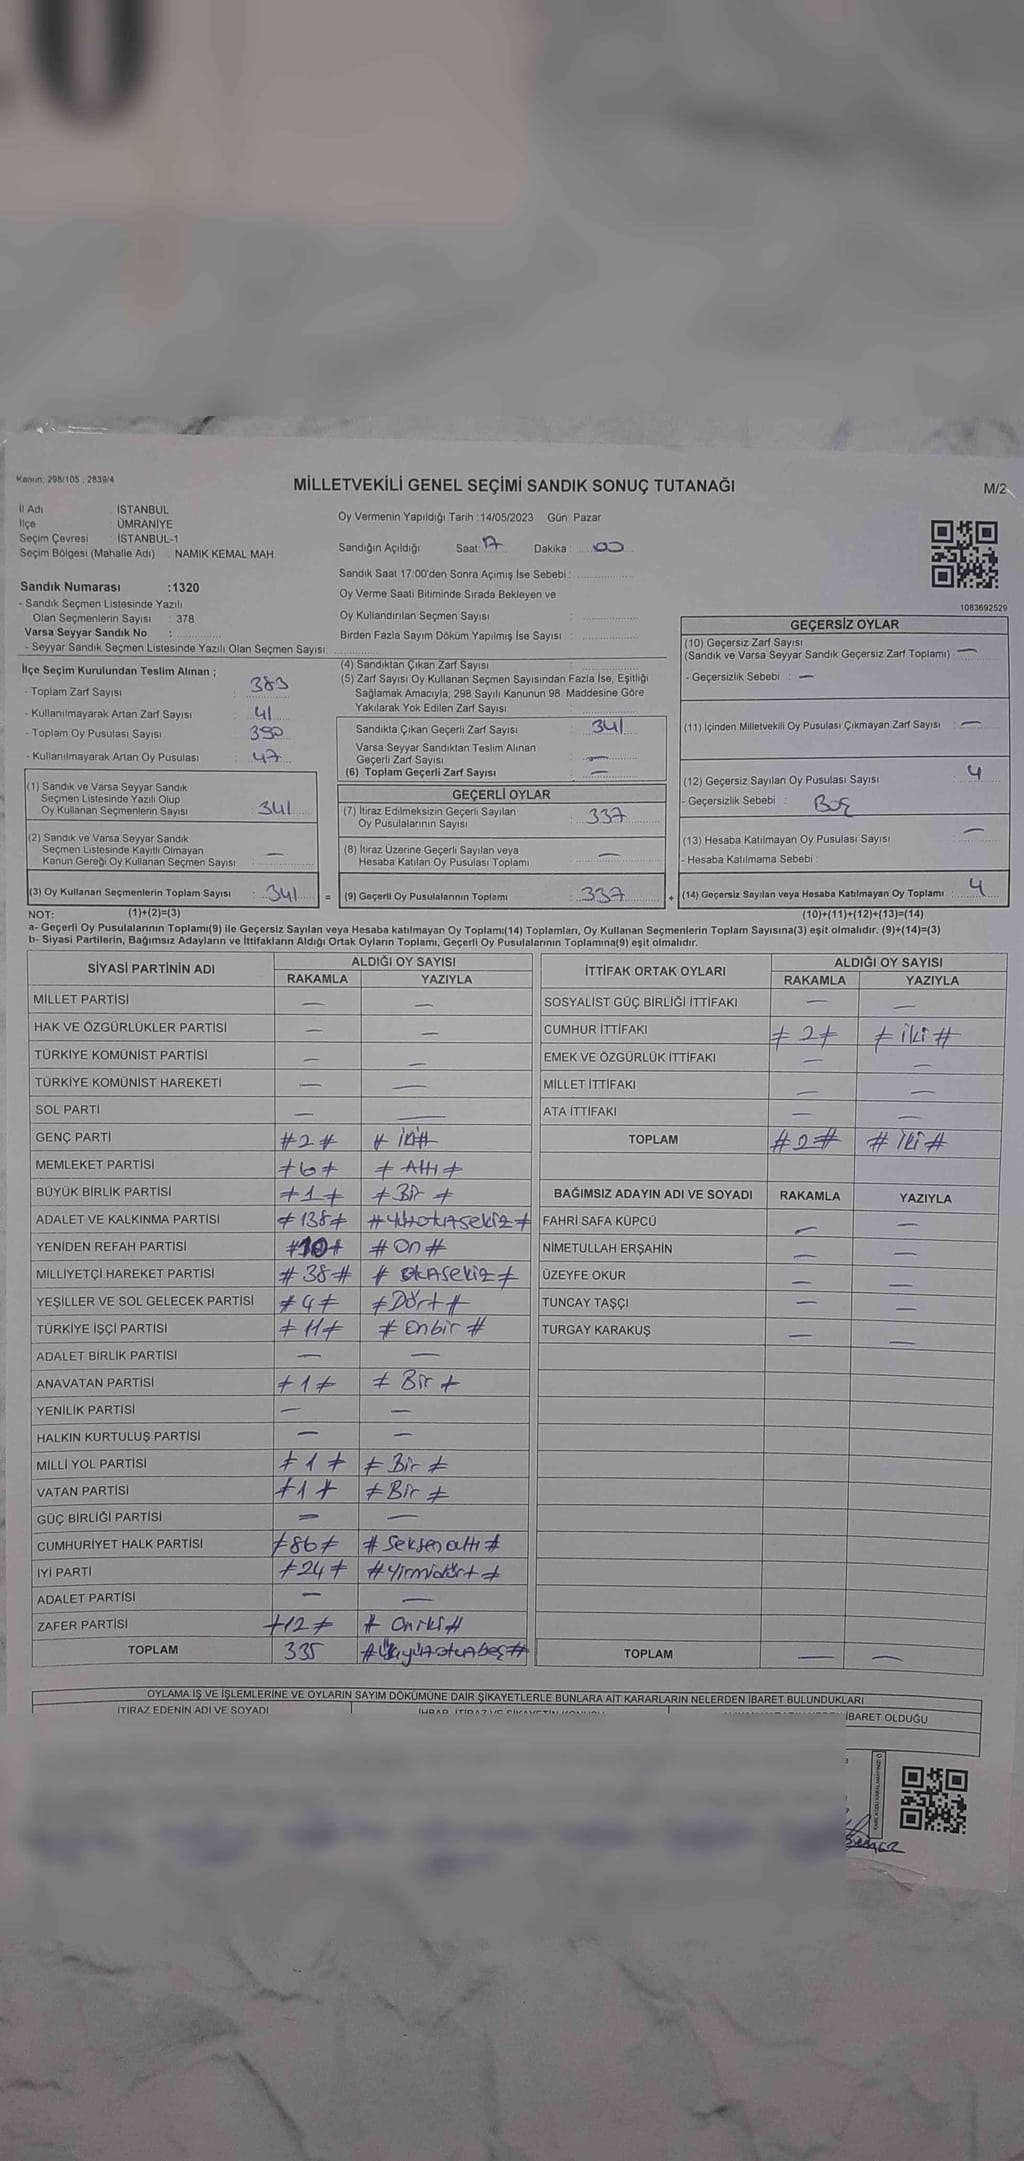 Kanun; 298/105 , 2839/4
MİLLETVEKİLİ GENEL SEÇİMİ SANDIK SONUÇ TUTANAĞI
M/2
İl Adı : İSTANBUL
İlçe : ÜMRANİYE
Seçim Çevresi : İSTANBUL-1
Seçim Bölgesi (Mahalle Adı) : NAMIK KEMAL MAH.
Oy Vermenin Yapıldığı Tarih :14/05/2023 Gün: Pazar
Sandığın Açıldığı Saat: 17 Dakika : 00
Sandık Saat 17:00'den Sonra Açımış İse Sebebi :
Oy Verme Saati Bitiminde Sırada Bekleyen ve
Oy Kullandırılan Seçmen Sayısı :
Birden Fazla Sayım Döküm Yapılmış İse Sayısı :
1083692529
Sandık Numarası :1320
- Sandık Seçmen Listesinde Yazılı
Olan Seçmenlerin Sayısı : 378
Varsa Seyyar Sandık No :
- Seyyar Sandık Seçmen Listesinde Yazılı Olan Seçmen Sayısı:
İlçe Seçim Kurulundan Teslim Alınan ;
- Toplam Zarf Sayısı : 383
- Kullanılmayarak Artan Zarf Sayısı : 41
- Toplam Oy Pusulası Sayısı : 390
- Kullanılmayarak Artan Oy Pusulası : 47
(1) Sandık ve Varsa Seyyar Sandık
Seçmen Listesinde Yazılı Olup
Oy Kullanan Seçmenlerin Sayısı : 341
(2) Sandık ve Varsa Seyyar Sandık
Seçmen Listesinde Kayıtlı Olmayan
Kanun Gereği Oy Kullanan Seçmen Sayısı : —
(3) Oy Kullanan Seçmenlerin Toplam Sayısı : 341 =
(4) Sandıktan Çıkan Zarf Sayısı :
(5) Zarf Sayısı Oy Kullanan Seçmen Sayısından Fazla İse, Eşitliği
Sağlamak Amacıyla; 298 Sayılı Kanunun 98. Maddesine Göre
Yakılarak Yok Edilen Zarf Sayısı :
Sandıkta Çıkan Geçerli Zarf Sayısı : 341
Varsa Seyyar Sandıktan Teslim Alınan
Geçerli Zarf Sayısı : —
(6) Toplam Geçerli Zarf Sayısı : —
GEÇERLİ OYLAR
(7) İtiraz Edilmeksizin Geçerli Sayılan
Oy Pusulalarının Sayısı : 337
(8) İtiraz Üzerine Geçerli Sayılan veya
Hesaba Katılan Oy Pusulası Toplamı : —
(9) Geçerli Oy Pusulalarının Toplamı : 337 +
GEÇERSİZ OYLAR
(10) Geçersiz Zarf Sayısı
(Sandık ve Varsa Seyyar Sandık Geçersiz Zarf Toplamı) : —
- Geçersizlik Sebebi : —
(11) İçinden Milletvekili Oy Pusulası Çıkmayan Zarf Sayısı : —
(12) Geçersiz Sayılan Oy Pusulası Sayısı : 4
- Geçersizlik Sebebi : Boş
(13) Hesaba Katılmayan Oy Pusulası Sayısı : —
- Hesaba Katılmama Sebebi :
(14) Geçersiz Sayılan veya Hesaba Katılmayan Oy Toplamı : 4
NOT: (1)+(2)=(3) (10)+(11)+(12)+(13)=(14)
a- Geçerli Oy Pusulalarının Toplamı(9) ile Geçersiz Sayılan veya Hesaba katılmayan Oy Toplamı(14) Toplamları, Oy Kullanan Seçmenlerin Toplam Sayısına(3) eşit olmalıdır. (9)+(14)=(3)
b- Siyasi Partilerin, Bağımsız Adayların ve İttifakların Aldığı Ortak Oyların Toplamı, Geçerli Oy Pusulalarının Toplamına(9) eşit olmalıdır.
SİYASİ PARTİNİN ADI ALDIĞI OY SAYISI
RAKAMLA YAZIYLA
MİLLET PARTİSİ — —
HAK VE ÖZGÜRLÜKLER PARTİSİ — —
TÜRKİYE KOMÜNİST PARTİSİ — —
TÜRKİYE KOMÜNİST HAREKETİ — —
SOL PARTİ — —
GENÇ PARTİ #2# # iki#
MEMLEKET PARTİSİ #6# # Altı #
BÜYÜK BİRLİK PARTİSİ #1# # Bir #
ADALET VE KALKINMA PARTİSİ #138# #Yüzotuzsekiz#
YENİDEN REFAH PARTİSİ #10# # On #
MİLLİYETÇİ HAREKET PARTİSİ # 38 # # otuzsekiz #
YEŞİLLER VE SOL GELECEK PARTİSİ #4# #Dört#
TÜRKİYE İŞÇİ PARTİSİ #11# # Onbir #
ADALET BİRLİK PARTİSİ — —
ANAVATAN PARTİSİ #1# # Bir #
YENİLİK PARTİSİ — —
HALKIN KURTULUŞ PARTİSİ — —
MİLLİ YOL PARTİSİ #1# # Bir #
VATAN PARTİSİ #1# #Bir #
GÜÇ BİRLİĞİ PARTİSİ — —
CUMHURİYET HALK PARTİSİ #86# # Seksenaltı #
İYİ PARTİ #24# #Yirmidört #
ADALET PARTİSİ — —
ZAFER PARTİSİ #12# # Oniki#
TOPLAM 335 #Üçyüzotuzbeş#
İTTİFAK ORTAK OYLARI ALDIĞI OY SAYISI
RAKAMLA YAZIYLA
SOSYALİST GÜÇ BİRLİĞİ İTTİFAKI — —
CUMHUR İTTİFAKI # 2# # iki #
EMEK VE ÖZGÜRLÜK İTTİFAKI — —
MİLLET İTTİFAKI — —
ATA İTTİFAKI — —
TOPLAM #2# # iki #
BAĞIMSIZ ADAYIN ADI VE SOYADI RAKAMLA YAZIYLA
FAHRİ SAFA KÜPCÜ — —
NİMETULLAH ERŞAHİN — —
ÜZEYFE OKUR — —
TUNCAY TAŞÇI — —
TURGAY KARAKUŞ — —
TOPLAM — —
OYLAMA İŞ VE İŞLEMLERİNE VE OYLARIN SAYIM DÖKÜMÜNE DAİR ŞİKAYETLERLE BUNLARA AİT KARARLARIN NELERDEN İBARET BULUNDUKLARI
İTİRAZ EDENİN ADI VE SOYADI
İHBAR, İTİRAZ VE ŞİKAYETİN KONUSU
İBARET OLDUĞU